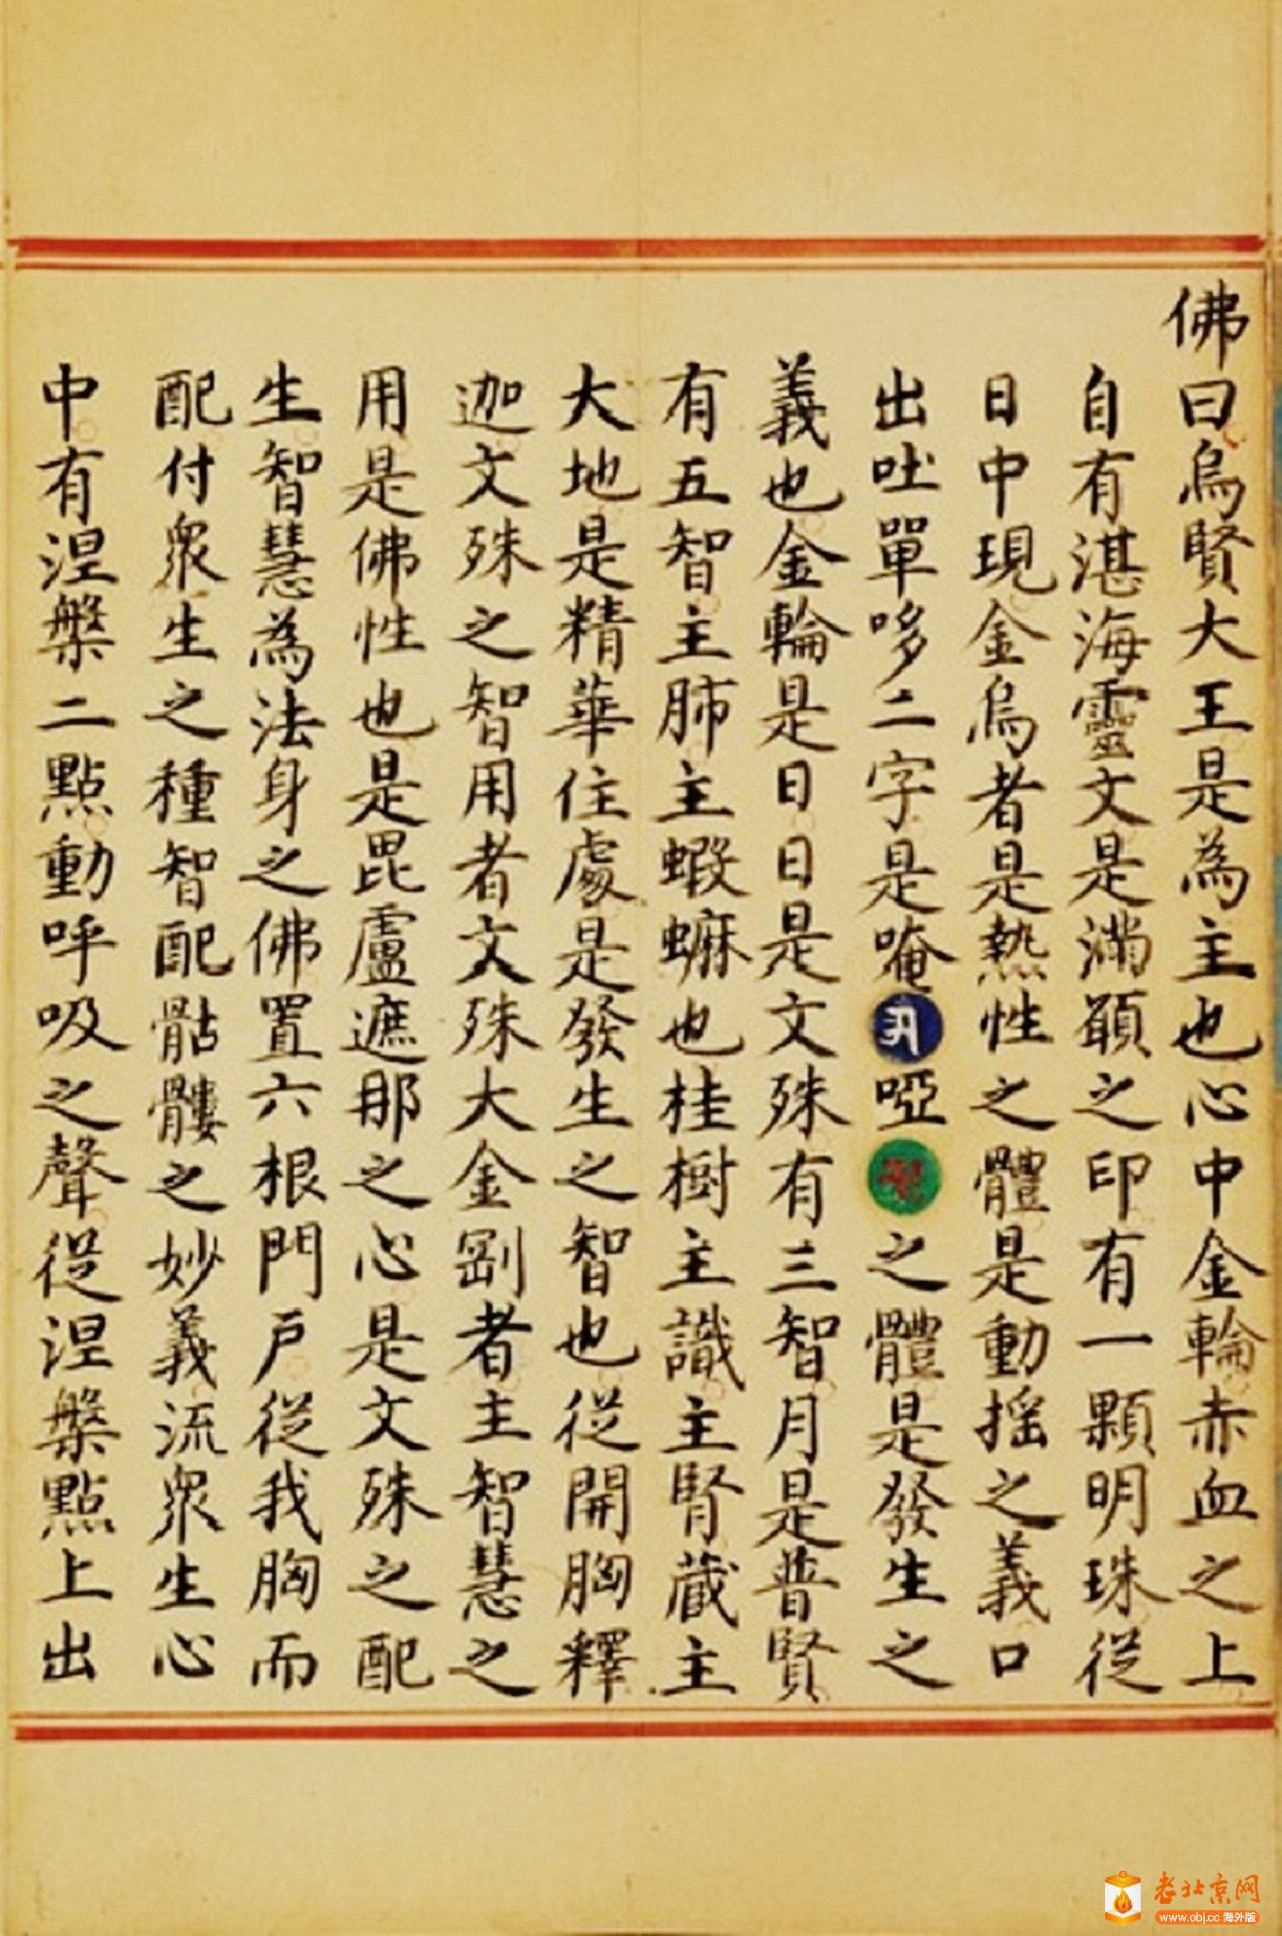 佛曰烏賢大王是為主也心中金輪赤血之上
自有湛海靈文是滿願之印有一顆明珠從
日中現金烏者是熱性之體是動摇之義口
出吐單哆二字是唵啞之體是發生之
義也金輪是日日是文殊有三智月是普賢
有五智主肺主蝦蟵也桂樹主識主腎藏主
大地是精華住處是發生之智也從開胸釋
迦文殊之智用者文殊大金剛者主智慧之
用是佛性也是毘盧遮那之心是文殊之配
生智慧為法身之佛置六根門戶從我胸而
配付眾生之種智配骷髏之妙義流眾生心
中有涅槃二點動呼吸之聲從涅槃點上出
老北京网
www.obj.cc 海外版